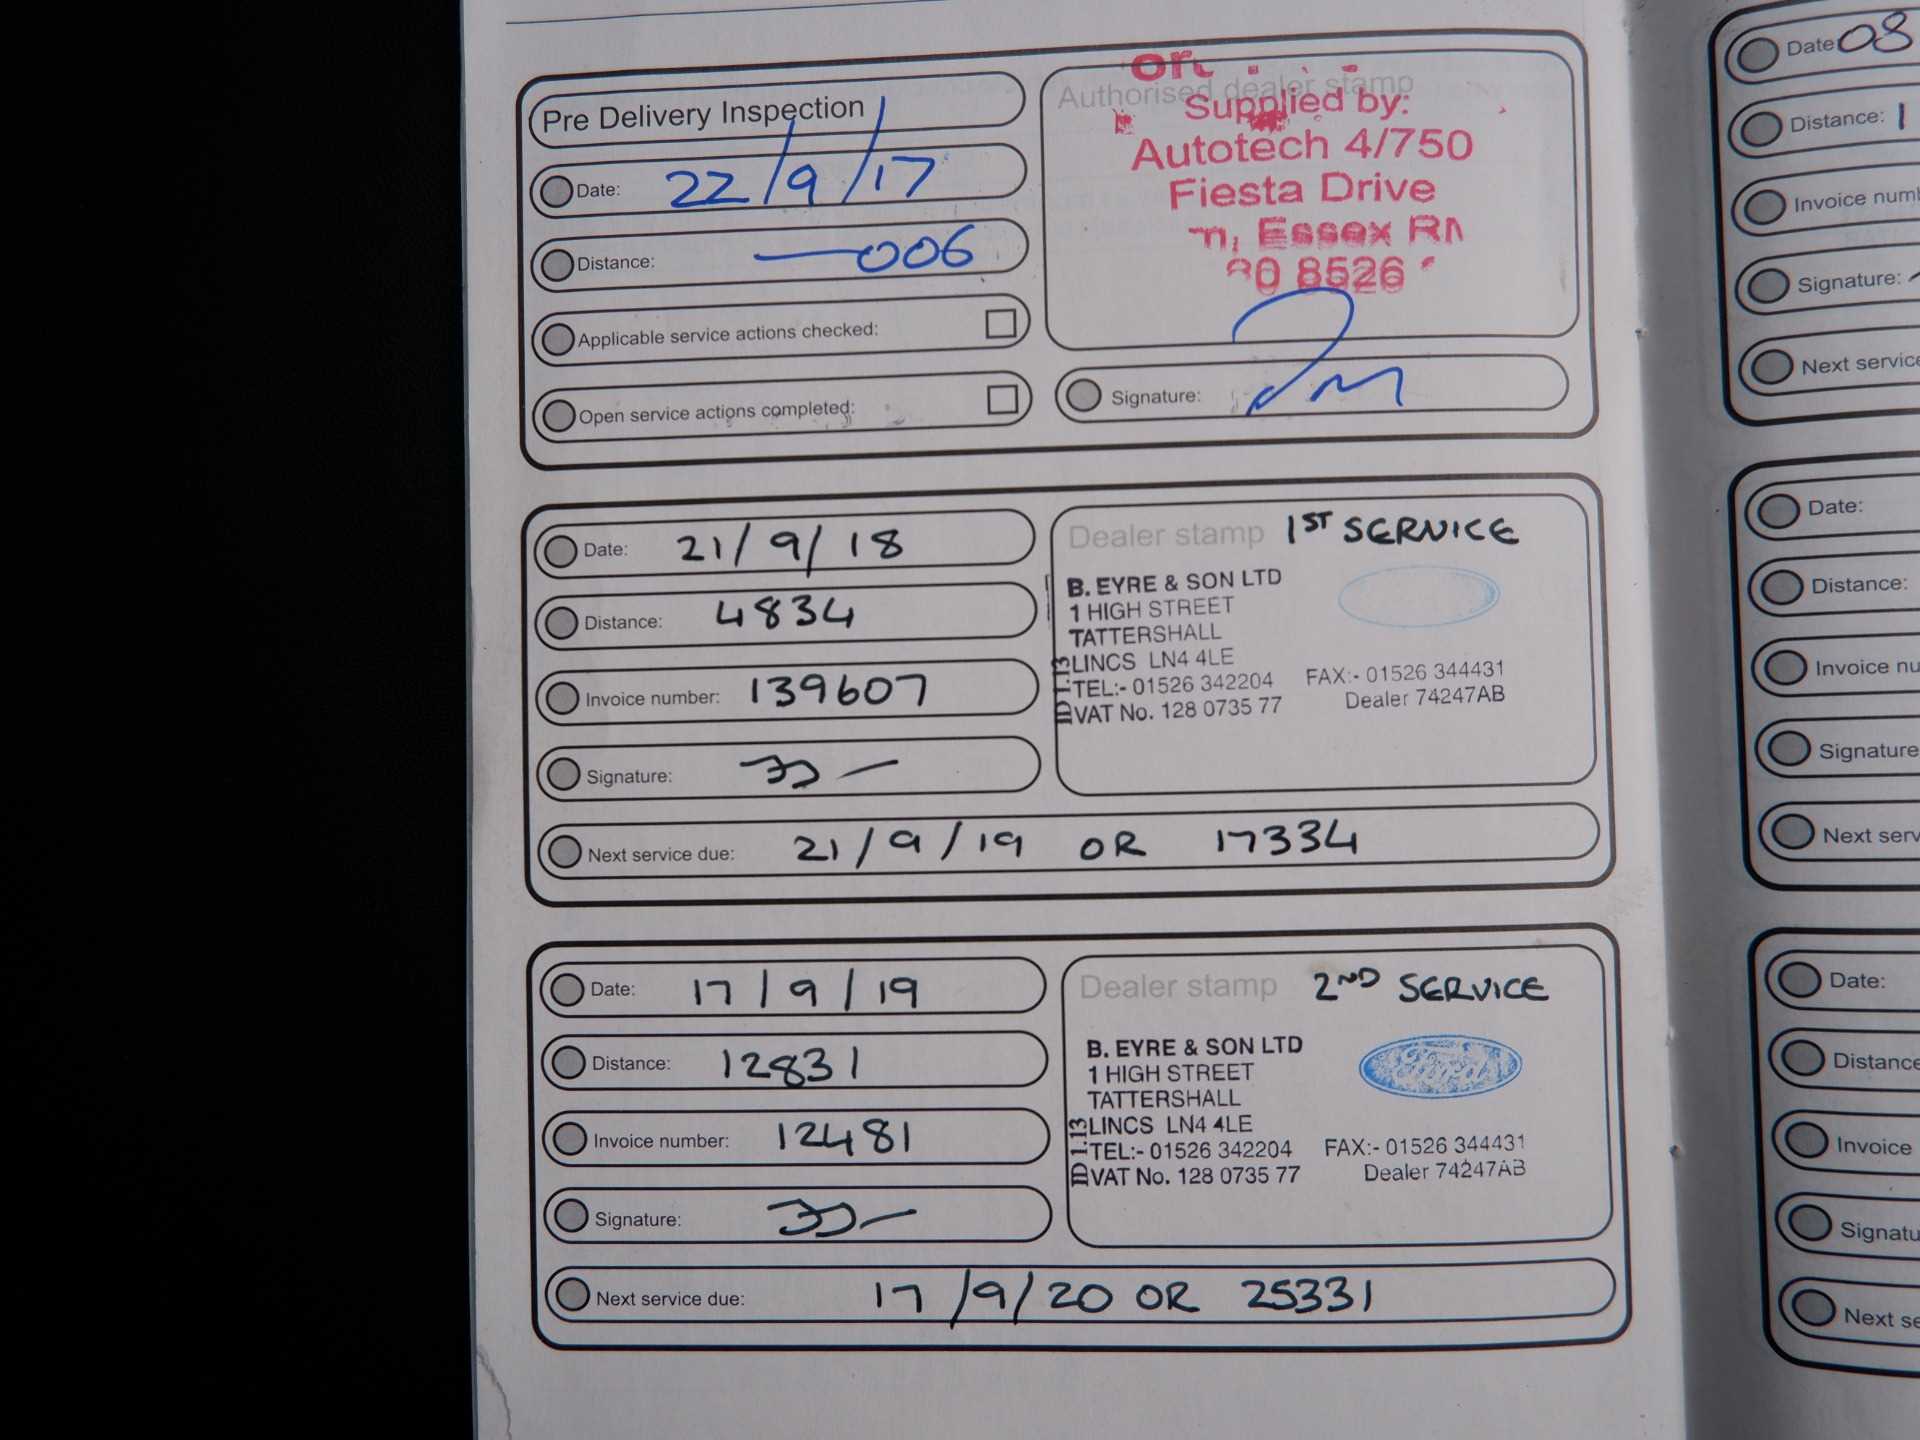 Pre Delivery Inspection
Date: 22/9/17
Distance: —006
Applicable service actions checked:
Open service actions completed:
Authorised dealer stamp
Supplied by:
Autotech 4/750
Fiesta Drive
Essex
8526
Signature:
Date: 21/9/18
Distance: 4834
Invoice number: 139607
Signature:
Next service due: 21/9/19 OR 17334
Dealer stamp 1ST SERVICE
B. EYRE & SON LTD
1 HIGH STREET
TATTERSHALL
LINCS LN4 4LE
TEL:- 01526 342204 FAX:- 01526 344431
VAT No. 128 0735 77 Dealer 74247AB
ID 1.13
Date: 17/9/19
Distance: 12831
Invoice number: 12481
Signature:
Next service due: 17/9/20 OR 25331
Dealer stamp 2ND SERVICE
B. EYRE & SON LTD
Ford
1 HIGH STREET
TATTERSHALL
LINCS LN4 4LE
TEL:- 01526 342204 FAX:- 01526 344431
VAT No. 128 0735 77 Dealer 74247AB
ID 1.13
Date: 08
Distance: 1
Invoice
Signature:
Next service
Date:
Distance:
Invoice
Signature
Next
Date:
Distance
Invoice
Next